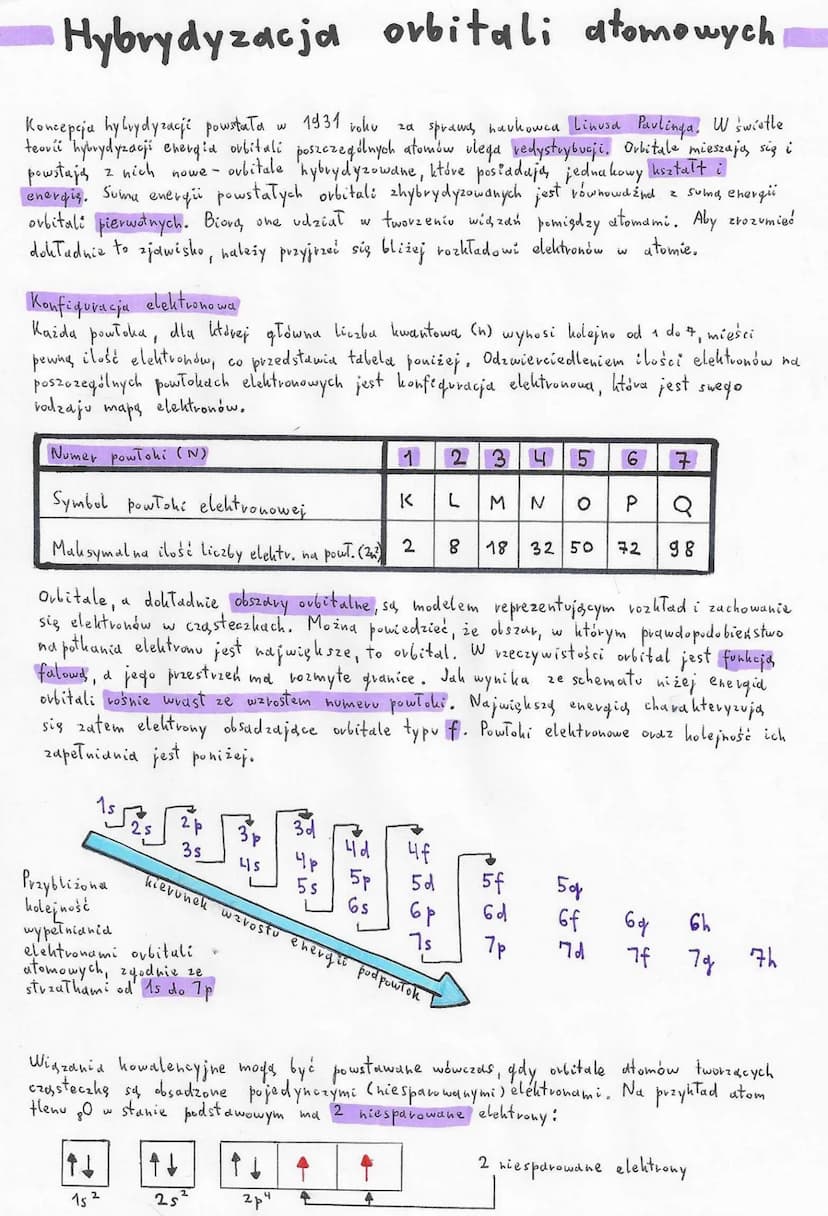 Hybrydyzacja orbitali atomowych
Koncepcja hybrydyzacji powstała w 1931 roku za sprawą naukowca Linusa Paulinga. W świetle
teorii hybrydyzacji energia orbitali poszczególnych atomów ulega redystrybucji. Orbitale mieszają się i
powstają z nich nowe - orbitale hybrydyzowane, które posiadają jednakowy kształt i
energię. Suma energii powstałych orbitali zhybrydyzowanych jest równoważna z sumą energii
orbitali pierwotnych. Biorą one udział w tworzeniu wiązań pomiędzy atomami. Aby zrozumieć
dokładnie to zjawisko, należy przyjrzeć się bliżej rozkładowi elektronów w atomie.
Konfiguracja elektronowa
Każda powłoka, dla której główna liczba kwantowa (n) wynosi kolejno od 1 do 7, mieści
pewną ilość elektronów, co przedstawia tabela poniżej. Odzwierciedleniem ilości elektronów na
poszczególnych powłokach elektronowych jest konfiguracja elektronowa, która jest swego
rodzaju mapą elektronów.
Numer powłoki (N) 1 2 3 4 5 6 7
Symbol powłoki elektronowej K L M N O P Q
Maksymalna ilość liczby elektr. na powł. (2n²) 2 8 18 32 50 72 98
Orbitale, a dokładnie obszary orbitalne, są modelem reprezentującym rozkład i zachowanie
się elektronów w cząsteczkach. Można powiedzieć, że obszar, w którym prawdopodobieństwo
napotkania elektronu jest największe, to orbital. W rzeczywistości orbital jest funkcją
falową, a jego przestrzeń ma rozmyte granice. Jak wynika ze schematu niżej energia
orbitali rośnie wraz ze wzrostem numeru powłoki. Największą energią charakteryzują
się zatem elektrony obsadzające orbitale typu f. Powłoki elektronowe oraz kolejność ich
zapełniania jest poniżej.
1s
2s 2p
3s 3p 3d
4s 4p 4d 4f
5s 5p 5d 5f 5g
6s 6p 6d 6f 6g 6h
7s 7p 7d 7f 7g 7h
kierunek wzrostu energii podpowłok
Przybliżona
kolejność
wypełniania
elektronami orbitali
atomowych, zgodnie ze
strzałkami od 1s do 7p
Wiązania kowalencyjne mogą być powstawane wówczas, gdy orbitale atomów tworzących
cząsteczkę są obsadzone pojedynczymi (niesparowanymi) elektronami. Na przykład atom
tlenu ₈O w stanie podstawowym ma 2 niesparowane elektrony:
2 niesparowane elektrony
1s² 2s² 2p⁴